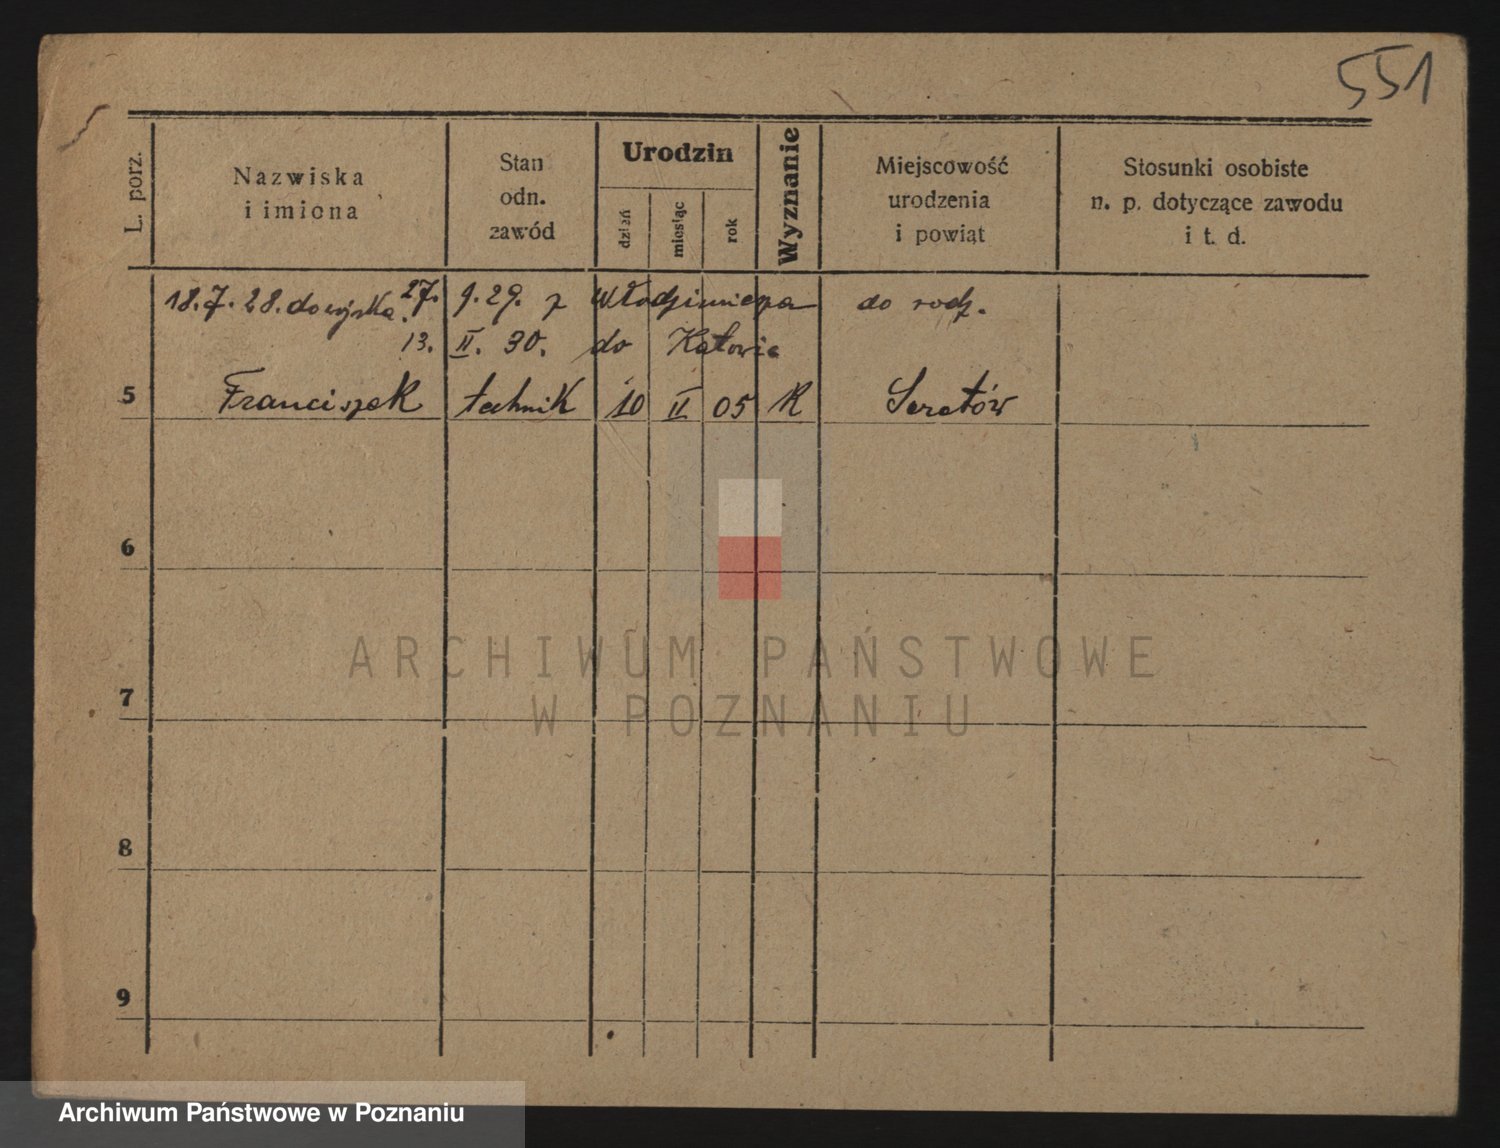 551
L. porz.
Nazwiska
i imiona
Stan
odn.
zawód
Urodzin
dzień
miesiąc
rok
Wyznanie
Miejscowość
urodzenia
i powiąt
Stosunki osobiste
n. p. dotyczące zawodu
i t. d.
18.7.28. do wojska. 27. 9.29. z Włodzimierza do rodz.
13. II. 30. do Katowic
5 Franciszek technik 10 II 05 R
6
7
8
9
ARCHIWUM PAŃSTWOWE
W POZNANIU
Archiwum Państwowe w Poznaniu